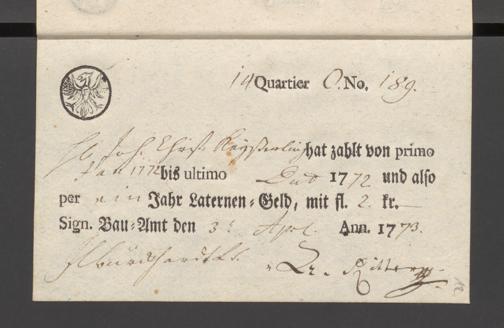 14 Quartier O. No. 189.
H. Joh. Christ. Keyßerling hat zahlt von primo
Jan 1772 bis ultimo Dec 1772 und also
per ein Jahr Laternen-Geld, mit fl. 2. kr.
Sign. Bau-Amt den 3t Apl. Ann. 1773.